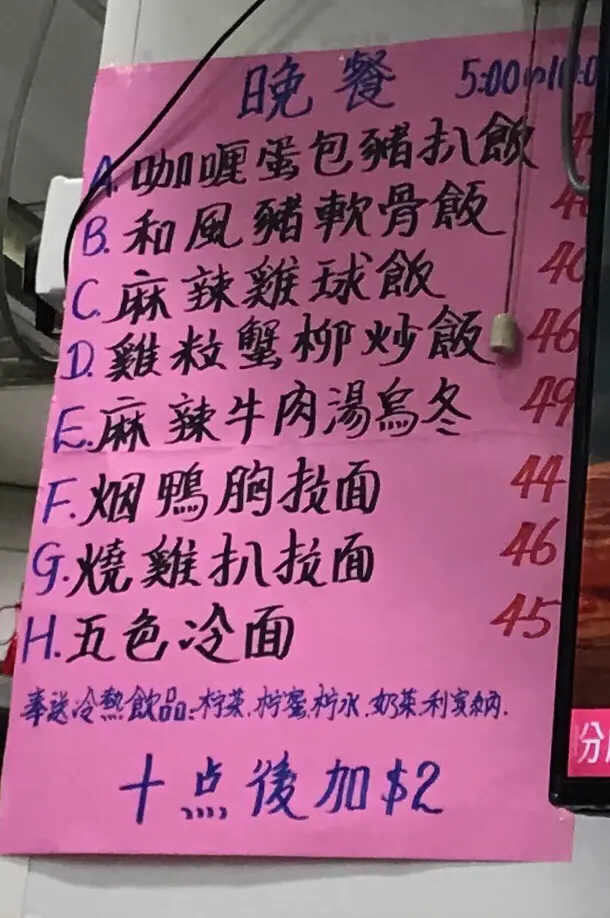 晚餐 5:00
A. 咖喱蛋包豬扒飯
B. 和風豬軟骨飯
C. 麻辣雞球飯 40
D. 雞粒蟹柳炒飯 46
E. 麻辣牛肉湯烏冬 49
F. 烟鴨胸拉面 44
G. 燒雞扒拉面 46
H. 五色冷面 45
奉送冷熱飲品:柠茶.柠蜜.柠水.奶茶.利宾納.
十点後加$2
分